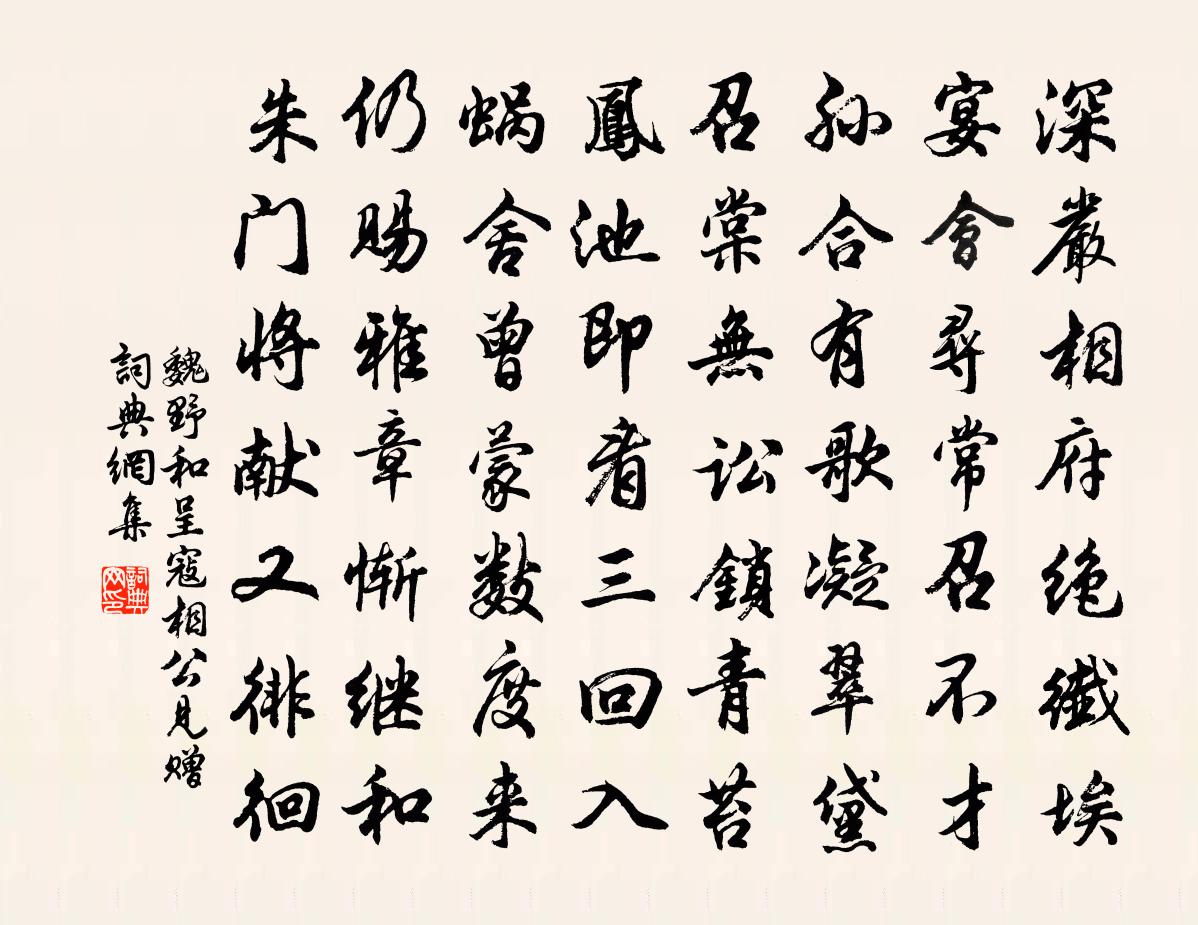 深嚴相府绝纖埃
宴會尋常召不才
孙合有歌凝翠黛
召棠無讼鎖青苔
鳳池即看三回入
蜗舍曾蒙数度来
仍赐雅章惭继和
朱门将献又徘徊
魏野和呈寇相公見赠
詞典網集
詞典网印